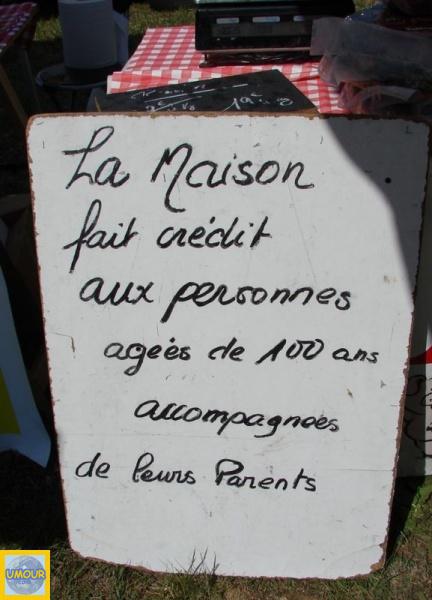 La Maison
fait crédit
aux personnes
agées de 100 ans
accompagnées
de leurs Parents
UMOUR